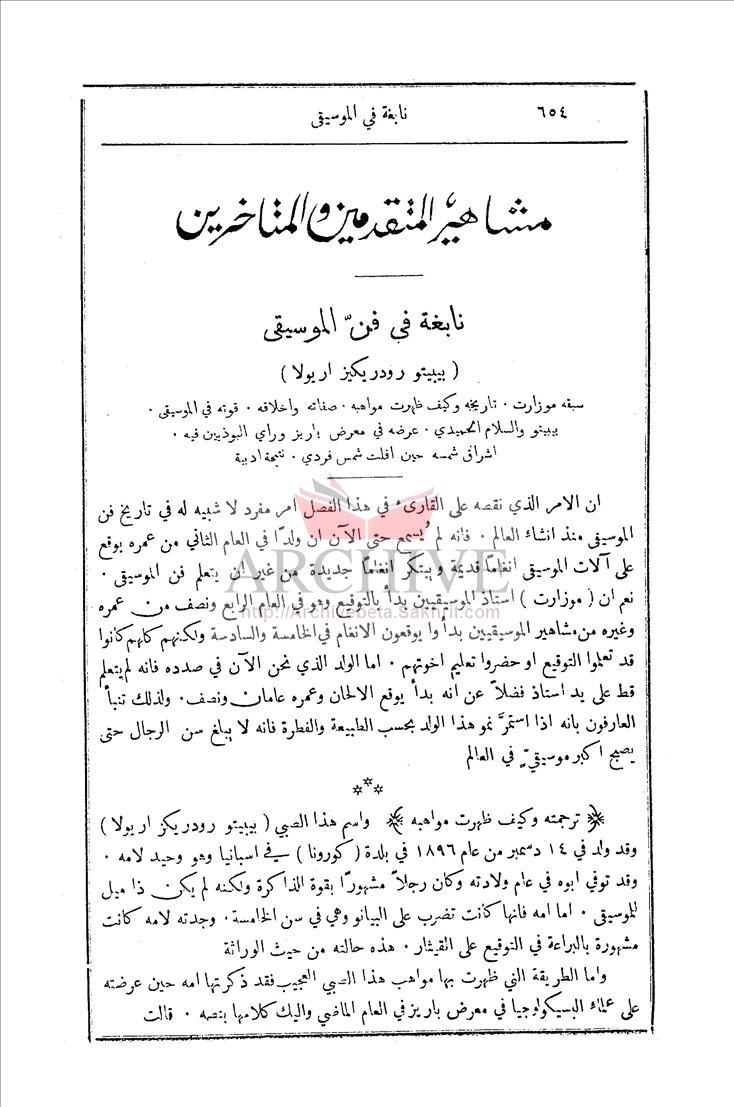 ٦٥٤
نابغة في الموسيقى
مشاهير المتقدمين والمتاخرين
نابغة في فنّ الموسيقى
( بيبيتو رودريكيز اريولا )
سبقه موزارت ٠ تاريخه وكيف ظهرت مواهبه ٠ صفاته واخلاقه ٠ قوته في الموسيقى ٠
بيبيتو والسلام الحميدي ٠ عرضه في معرض باريز وراي البوذيين فيه ٠
اشراق شمسه حين افلت شمس فردي ٠ نتيجة ادبية
ان الامر الذي نقصه على القارئ في هذا الفصل امر مفرد لا شبيه له في تاريخ فن
الموسيقى منذ انشاء العالم ٠ فانه لم يُسمع حتى الآن ان ولدًا في العام الثاني من عمره يوقع
على آلات الموسيقى انغامًا قديمة ويبتكر انغامًا جديدة من غير ان يتعلم فن الموسيقى ٠
نعم ان ( موزارت ) استاذ الموسيقيين بدأ بالتوقيع وهو في العام الرابع ونصف من عمره
وغيره من مشاهير الموسيقيين بدأوا يوقعون الانغام في الخامسة والسادسة ولكنهم كلهم كانوا
قد تعلموا التوقيع او حضروا تعليم اخوتهم ٠ اما الولد الذي نحن الآن في صدده فانه لم يتعلم
قط على يد استاذ فضلاً عن انه بدأ يوقع الالحان وعمره عامان ونصف ٠ ولذلك تنبأ
العارفون بانه اذا استمرَّ نمو هذا الولد بحسب الطبيعة والفطرة فانه لا يبلغ سن الرجال حتى
يصبح اكبر موسيقيٍّ في العالم
***
﴿ ترجمته وكيف ظهرت مواهبه ﴾ واسم هذا الصبي ( بيبيتو رودريكز اريولا )
وقد ولد في ١٤ دسمبر من عام ١٨٩٦ في بلدة ( كورونا ) في اسبانيا وهو وحيد لامه ٠
وقد توفي ابوه في عام ولادته وكان رجلاً مشهورًا بقوة الذاكرة ولكنه لم يكن ذا ميل
للموسيقى ٠ اما امه فانها كانت تضرب على البيانو وهي في سن الخامسة ٠ وجدته لامه كانت
مشهورة بالبراعة في التوقيع على القيثار ٠ هذه حالته من حيث الوراثة
واما الطريقة التي ظهرت بها مواهب هذا الصبي العجيب فقد ذكرتها امه حين عرضته
على علماء البسيكولوجيا في معرض باريز في العام الماضي واليك كلامها بنصه ٠ قالت
ARCHIVE
http://Archivebeta.Sakhrit.com